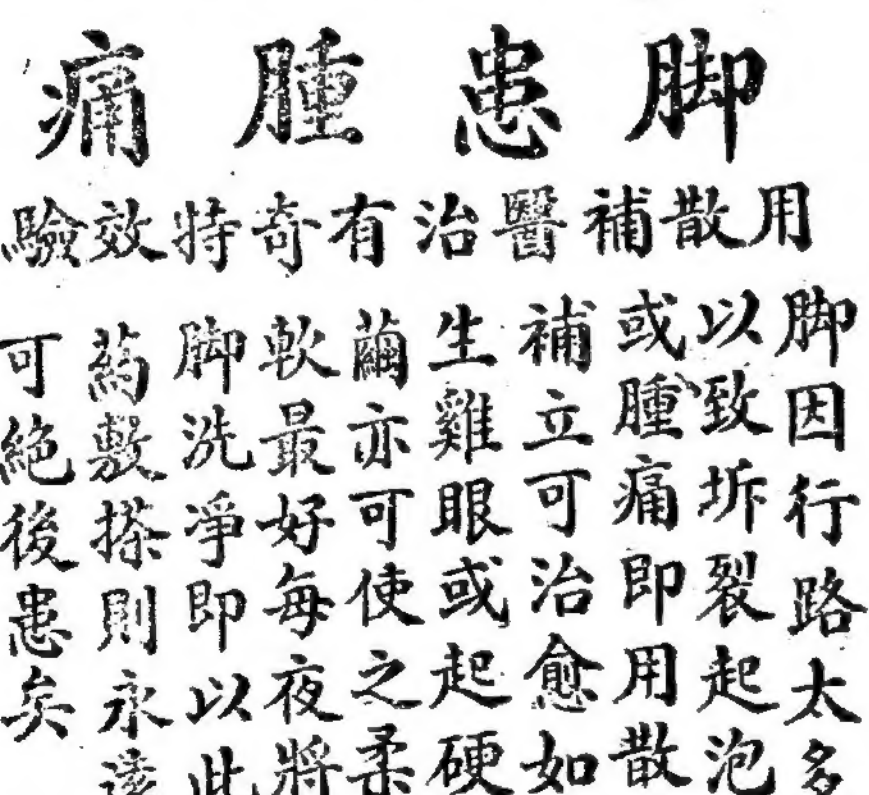 脚患腫痛
用散補醫治有奇特效驗
脚因行路太多
以致坼裂起泡
或腫痛即用散
補立可治愈如
生雞眼或起硬
繭亦可使之柔
軟最好每夜將
脚洗淨即以此
藥敷搽則永遠
可絕後患矣